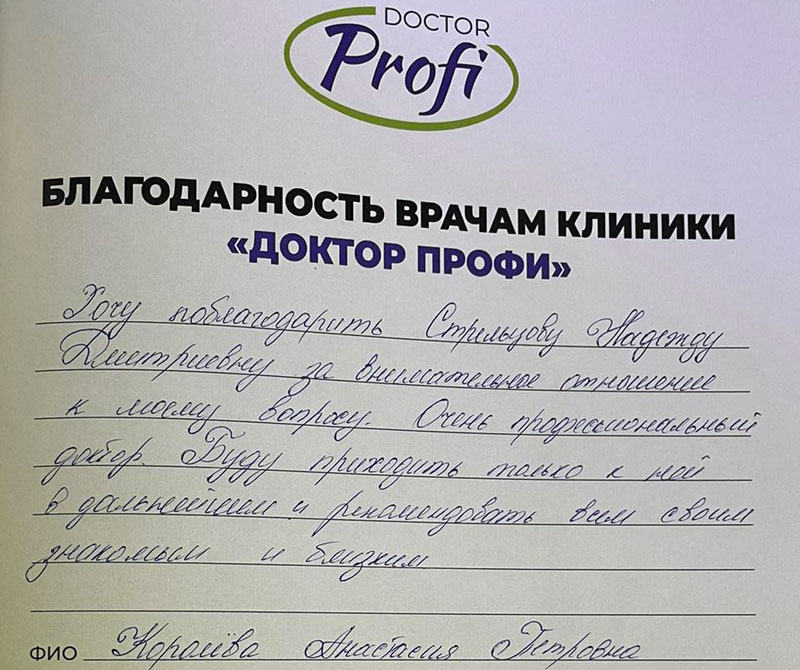 DOCTOR
Profi
БЛАГОДАРНОСТЬ ВРАЧАМ КЛИНИКИ
«ДОКТОР ПРОФИ»
Хочу поблагодарить Стрельцову Надежду
Дмитриевну за внимательное отношение
к моему вопросу. Очень профессиональный
доктор. Буду приходить только к ней
в дальнейшем и рекомендовать всем своим
знакомым и близким
ФИО Королёва Анастасия Петровна